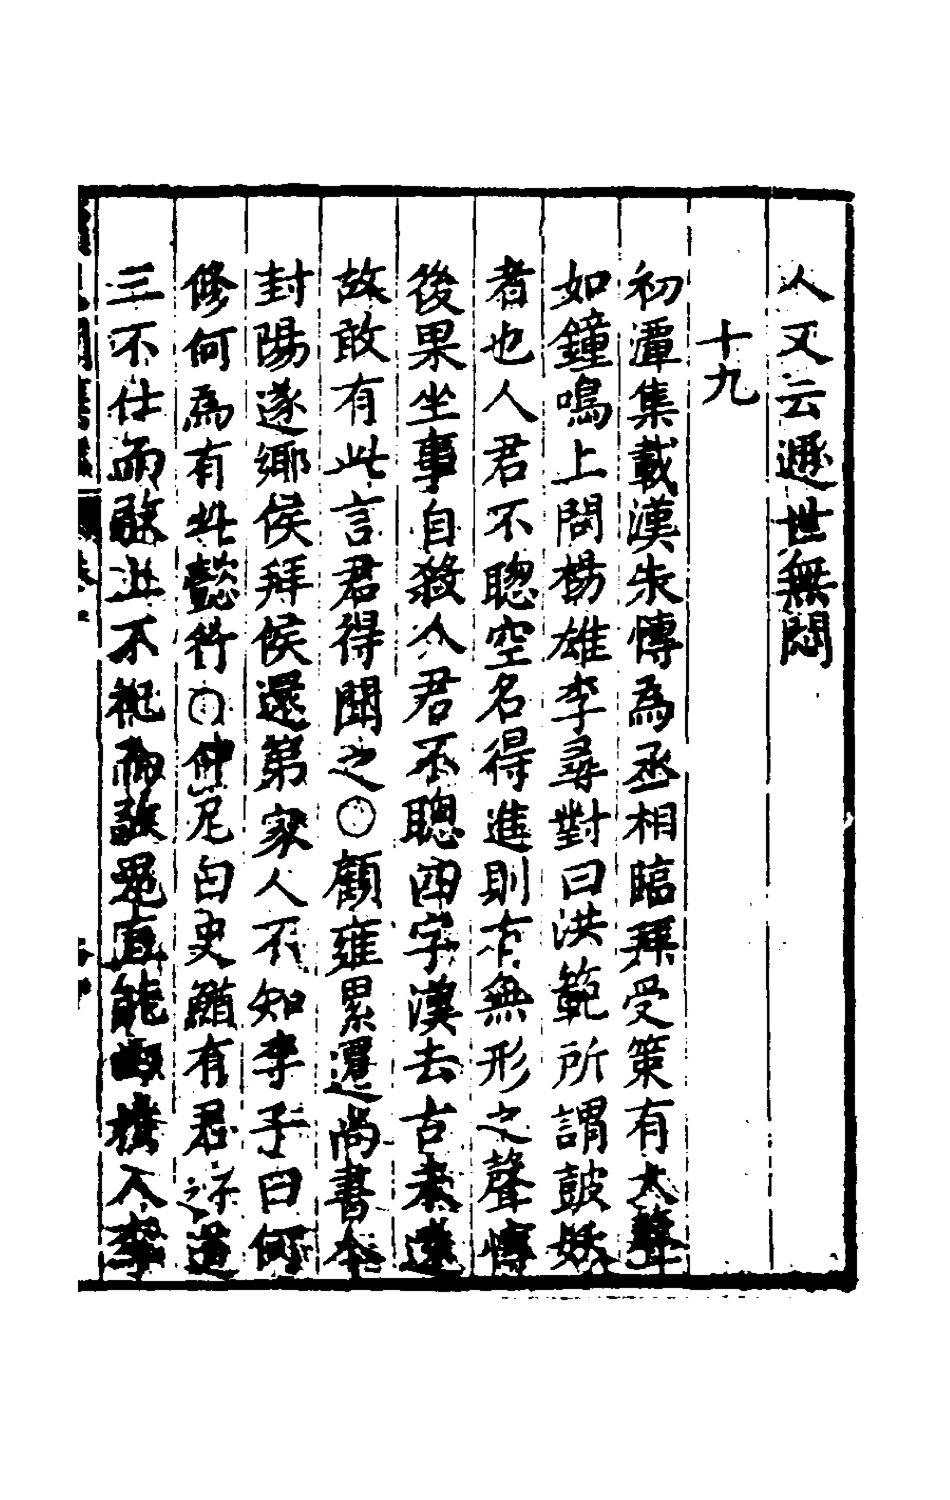 人又云遯世無悶
十九
初潭集載漢朱愽為丞相臨拜受策有大聲
如鐘鳴上問楊雄李尋對曰洪範所謂鼓妖
者也人君不聰空名得進則有無形之聲愽
後果坐事自殺人君不聰四字漢去古未遠
故敢有此言君得聞之〇顧雍累遷尚書令
封陽遂鄉侯拜侯還第家人不知李子曰何
修何為有此懿行〇仲尼曰史鰌有君子之道
三不仕而敬上不祀而敬鬼直能曲於人李